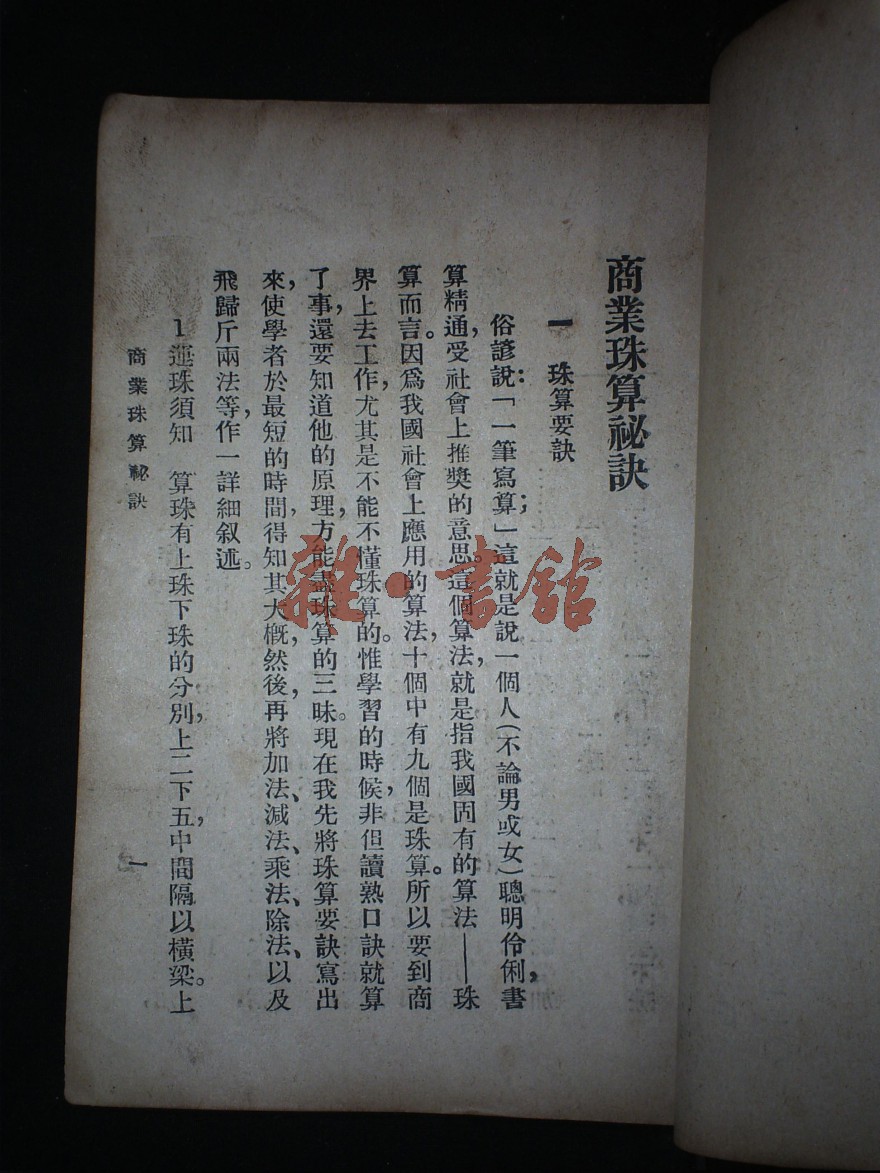 商業珠算祕訣
一　珠算要訣
俗諺說：「一筆寫算；」這就是說一個人（不論男或女）聰明伶俐，書
算精通，受社會上推獎的意思。這個算法，就是指我國固有的算法——珠
算而言。因爲我國社會上應用的算法，十個中有九個是珠算。所以要到商
界上去工作，尤其是不能不懂珠算的。惟學習的時候，非但讀熟口訣就算
了事，還要知道他的原理，方能盡珠算的三昧。現在我先將珠算要訣寫出
來，使學者於最短的時間，得知其大槪，然後，再將加法、減法、乘法、除法、以及
飛歸斤兩法等，作一詳細叙述。
1 運珠須知　算珠有上珠下珠的分別，上二下五，中間隔以橫梁。上
商業珠算祕訣
一
雜·書舘